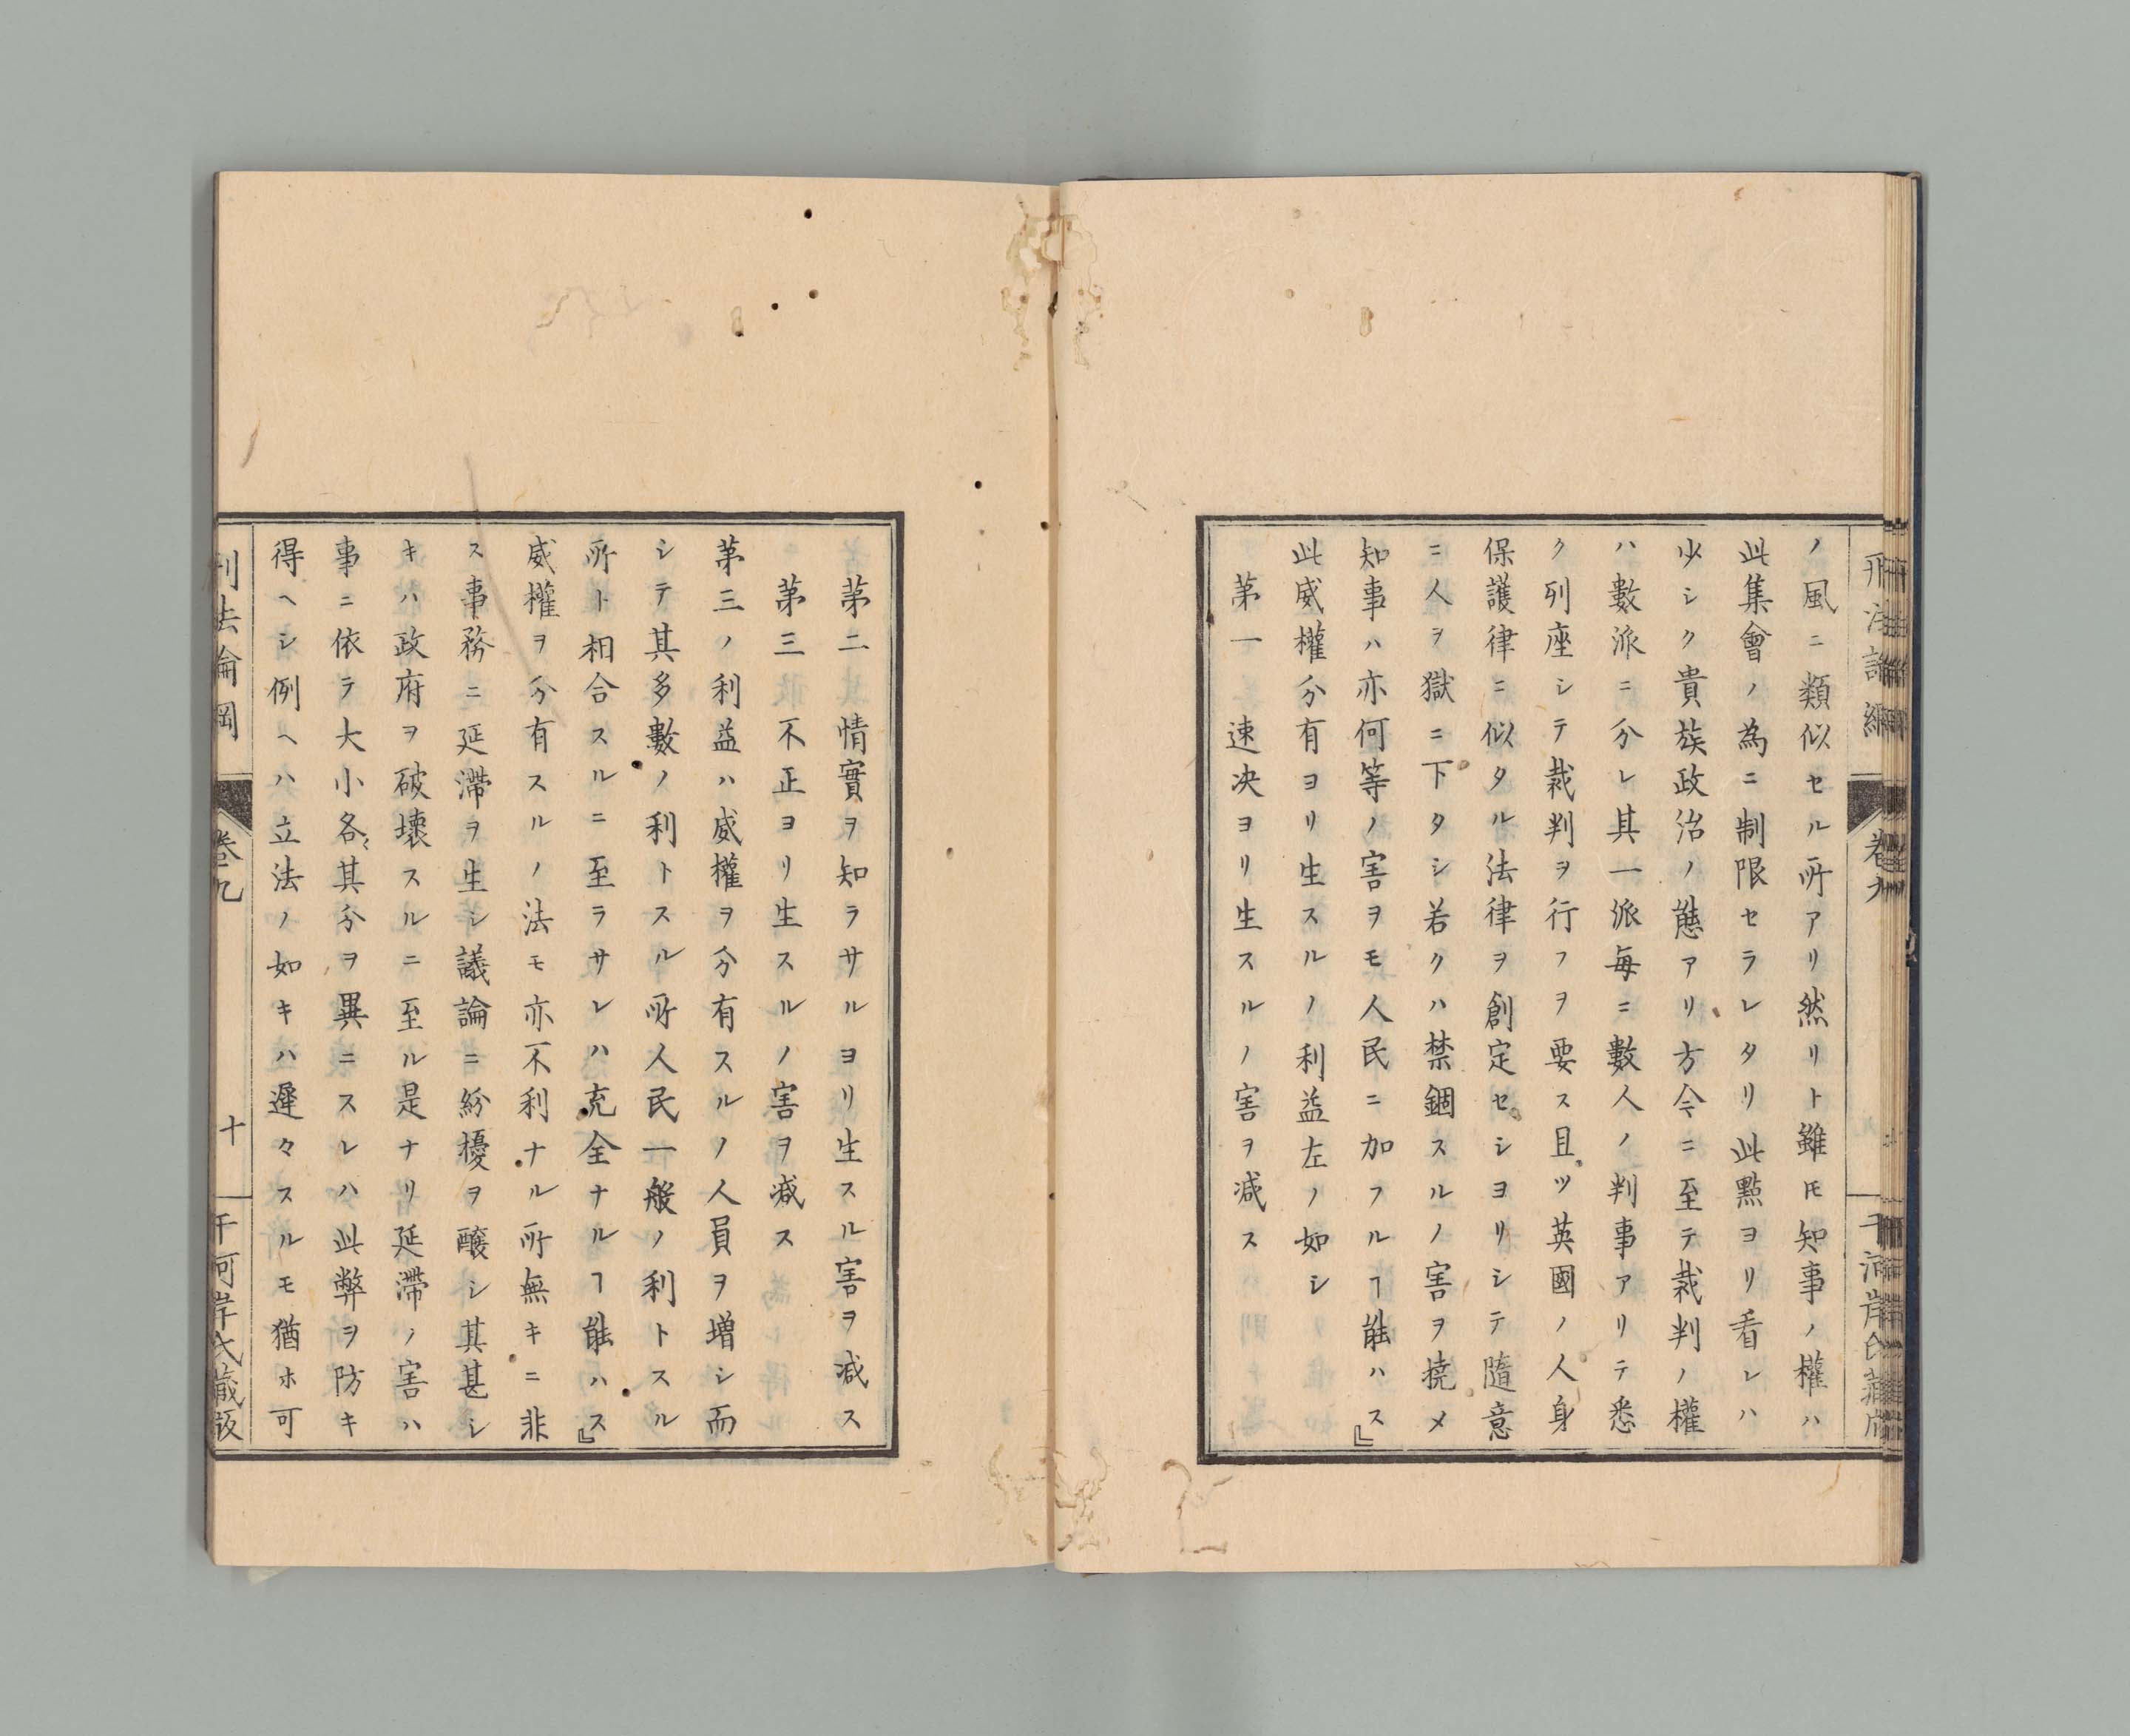 ノ風ニ類似セル所アリ然リト雖𪜈知事ノ權ハ
此集會ノ為ニ制限セラレタリ此㸃ヨリ看レハ
少シク貴族政治ノ態アリ方今ニ至テ裁判ノ權
ハ數派ニ分レ其一派毎ニ數人ノ判事アリテ悉
ク列座シテ裁判ヲ行フヲ要ス且ツ英國ノ人身
保護律ニ似タル法律ヲ創定セシヨリシテ隨意
ニ人ヲ獄ニ下タシ若クハ禁錮スルノ害ヲ撓メ
知事ハ亦何等ノ害ヲモ人民ニ加フルヿ能ハス』
此威權分有ヨリ生スルノ利益左ノ如シ
第一 速决ヨリ生スルノ害ヲ减ス
第二 情實ヲ知ラサルヨリ生スル害ヲ减ス
第三 不正ヨリ生スルノ害ヲ减ス
第三ノ利益ハ威權ヲ分有スルノ人員ヲ増シ而
シテ其多數ノ利トスル所人民一般ノ利トスル
所ト相合スルニ至ラサレハ充全ナルヿ能ハス』
威權ヲ分有スルノ法モ亦不利ナル所無キニ非
ス事務ニ延滯ヲ生シ議論ニ紛擾ヲ釀シ其甚シ
キハ政府ヲ破壊スルニ至ル是ナリ延滯ノ害ハ
事ニ依ラ大小各〻其分ヲ異ニスレハ此弊ヲ防キ
得ヘシ例ヘハ立法ノ如キハ遲々スルモ猶ホ可
刑法論綱 卷九 十 千河岸氏藏版